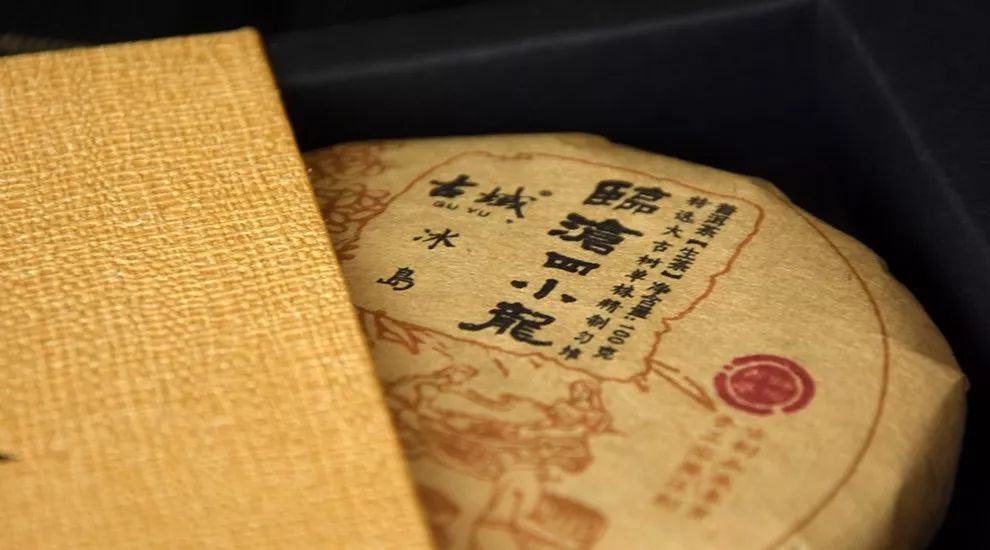 普洱茶【生茶】净含量:100克
特选大古树单株精制匀堆
臨滄四小龍
古域
GU YU
冰島